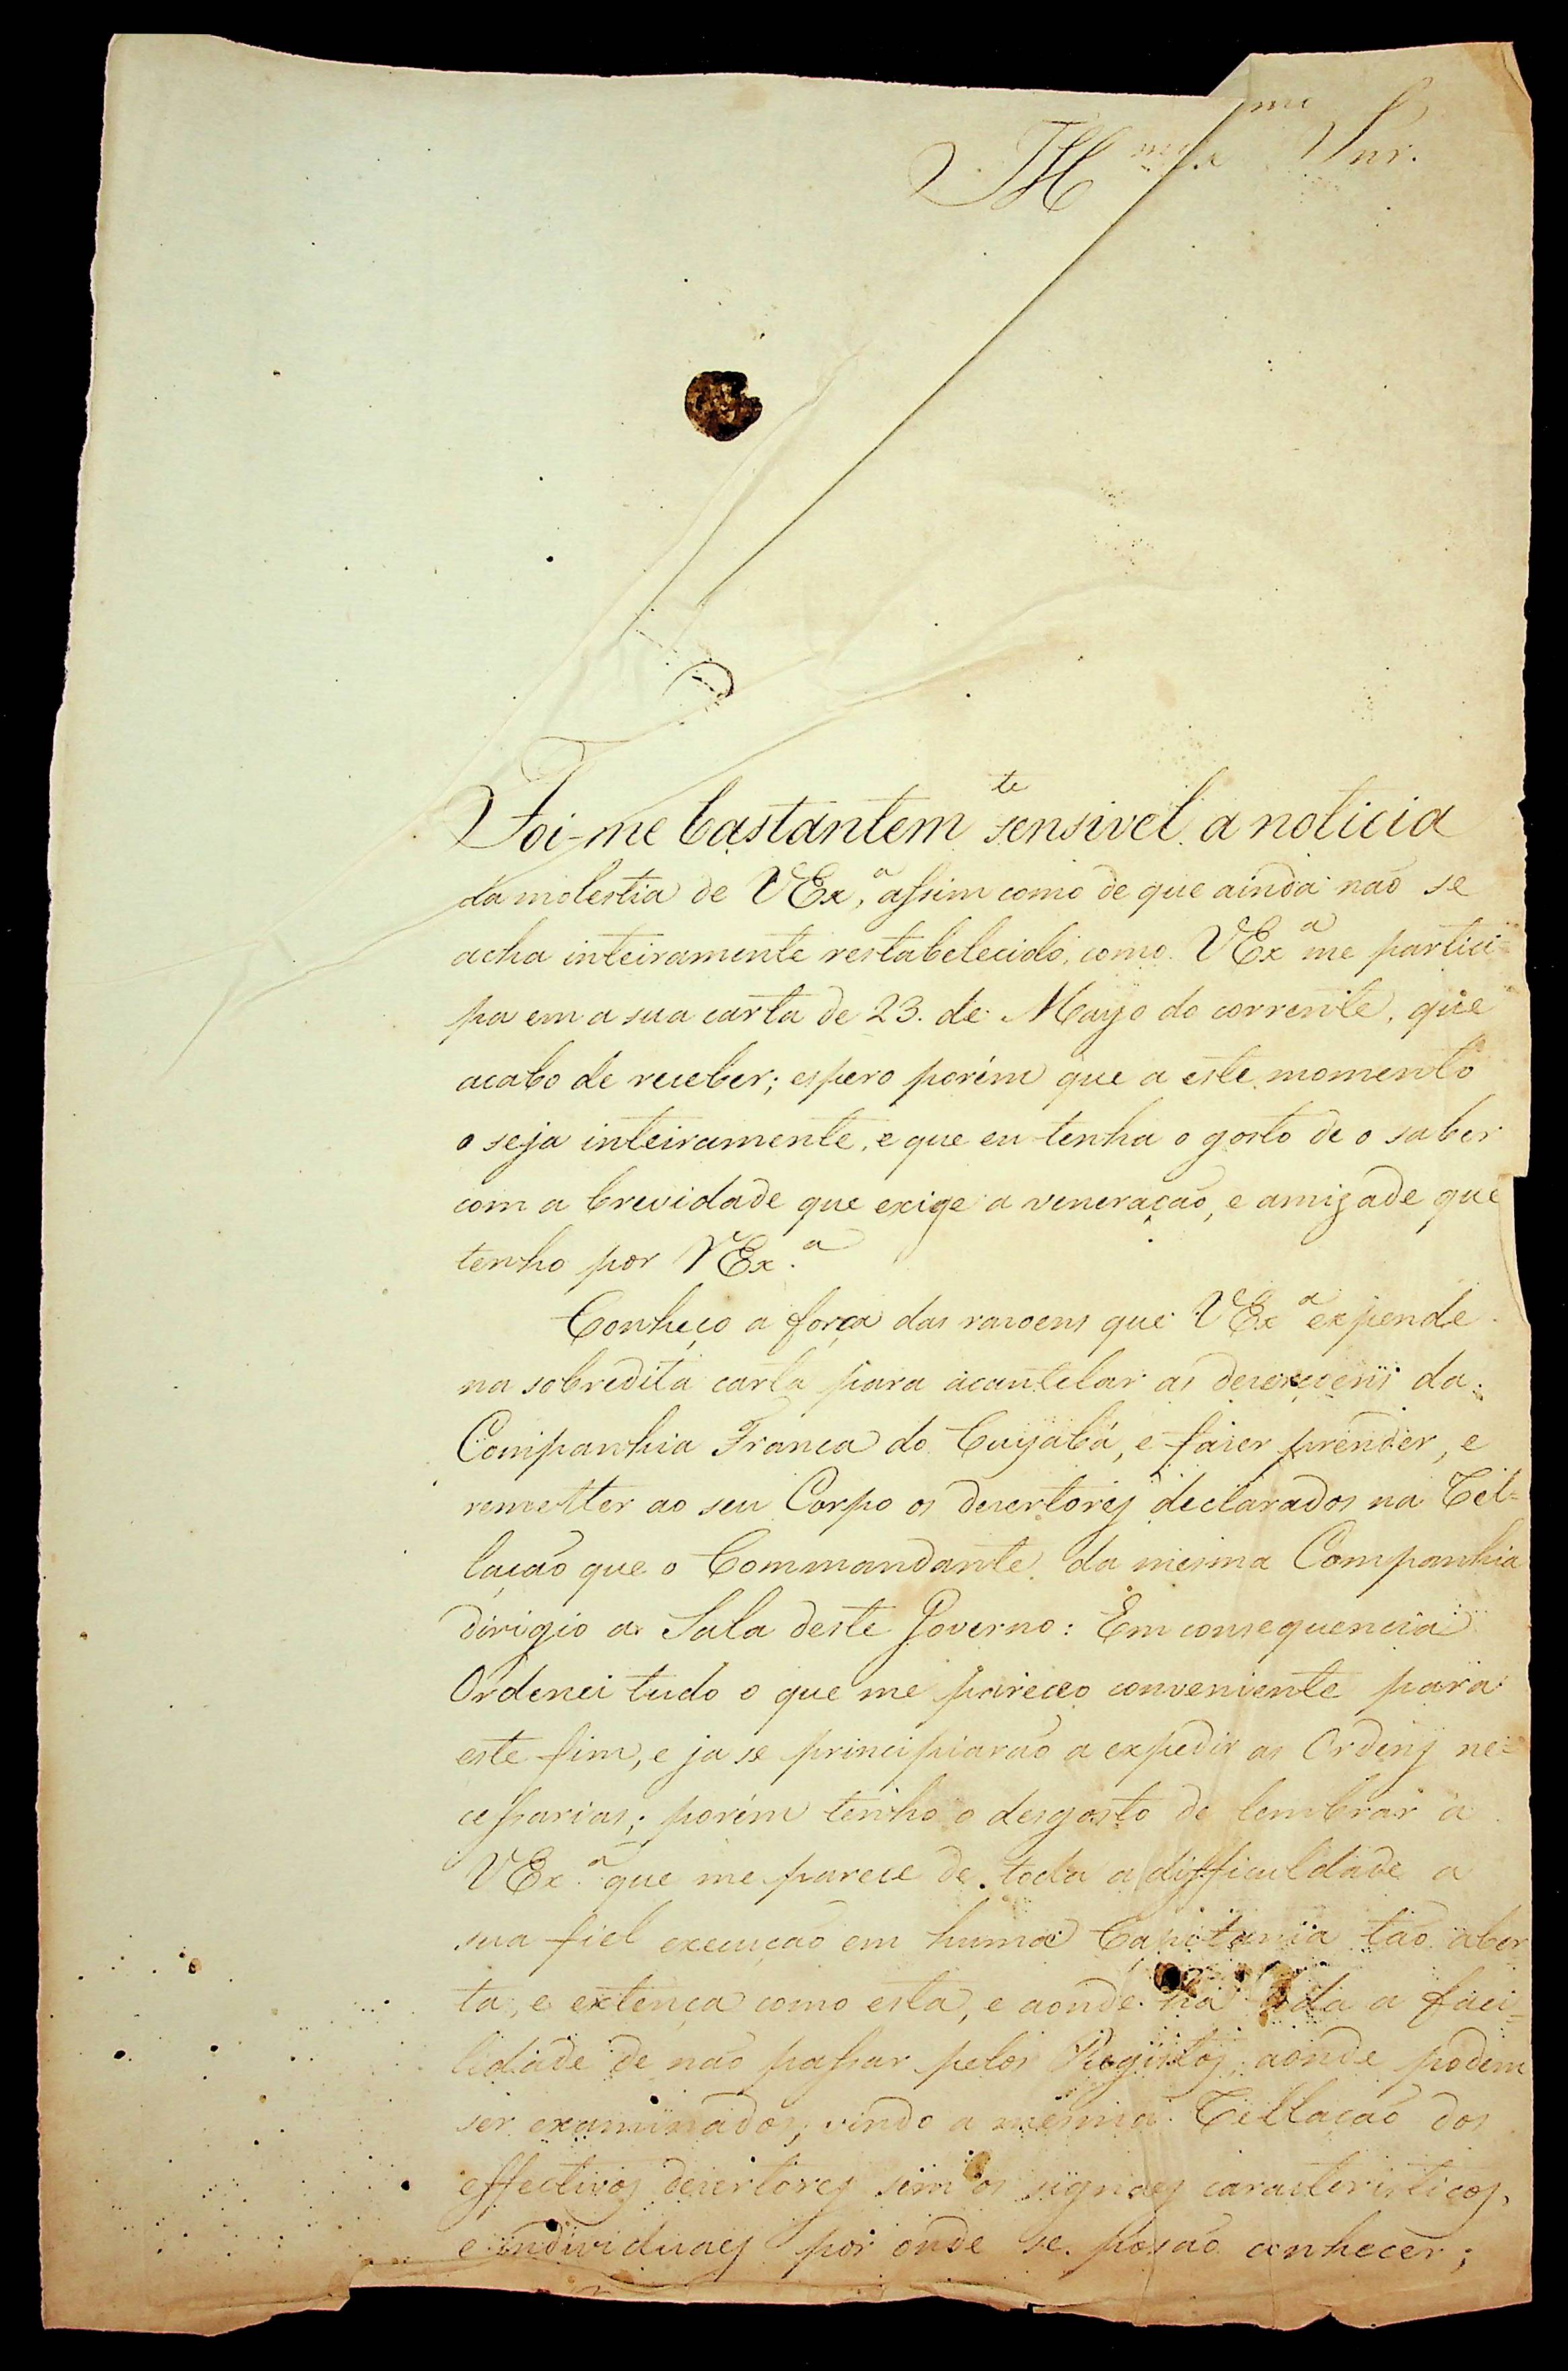 Ill.mo Ex.mo Snr.
Foi-me bastantem.te sensivel a noticia
da molestia de VEx.ª, assim como de que ainda naõ se
acha inteiramente restabelecido, como VEx.ª me partici-
pa em a sua carta de 23. de Mayo do corrente, que
acabo de receber; espero porém que a este momento
o seja inteiramente, e que eu tenha o gosto de o saber
com a brevidade que exige a veneraçaõ, e amizade que
tenho por VEx.ª
Conheço a força das razoens que VEx.ª expende
na sobredita carta para acautelar as deserçoens da
Companhia Franca do Cuyabá, e fazer prender, e
remetter ao seu Corpo os desertores declarados na Rel-
laçaõ que o Commandante da mesma Companhia
dirigio a Sala deste Governo: Em consequencia
Ordenei tudo o que me pareceo conveniente para
este fim, e ja se principiaraõ a expedir as Ordens ne-
cessarias; porém tenho o desgosto de lembrar a
VEx.ª que me parece de toda a difficuldade a
sua fiel execuçaõ em huma Capitania taõ aber
ta, e extença como esta, e aonde ha toda a faci-
lidade de naõ passar pelos Registos, aonde podem
ser examinados, vindo a mesma Rellaçaõ dos
effectivos desertores sem os signaes caracteristicos,
e individuaes por onde se possaõ conhecer;